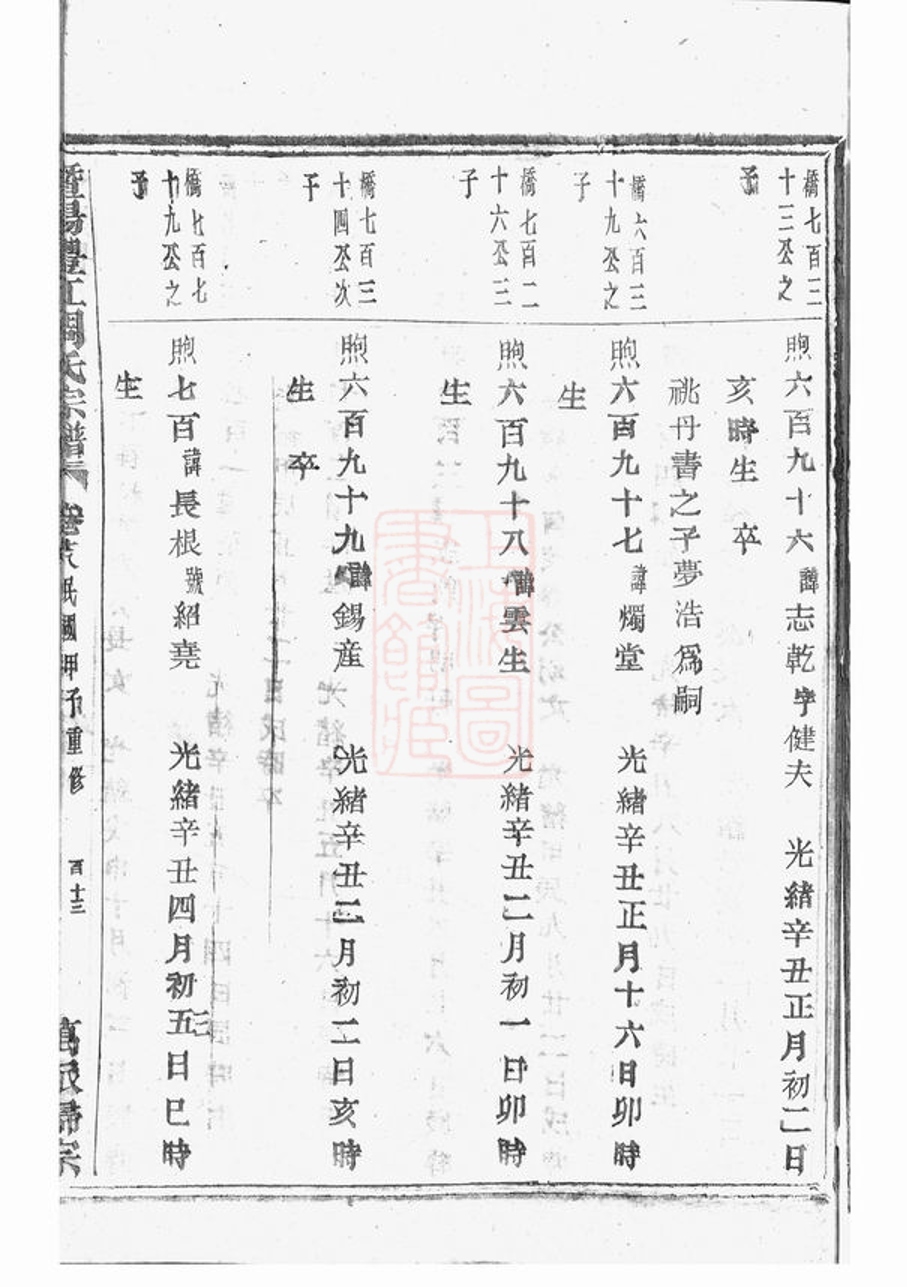 橋七百三
十三公之
子
煦六百九十六諱志乾字健夫 光緒辛丑正月初二日
亥時生 卒
祧丹書之子夢浩爲嗣
橋六百三
十九公之
子
煦六百九十七諱燭堂 光緒辛丑正月十六日卯時
生
橋七百二
十六公三
子
煦六百九十八諱雲生 光緒辛丑二月初一日卯時
生
橋七百三
十四公次
子
煦六百九十九諱錫産 光緒辛丑二月初二日亥時
生 卒
橋七百七
十九公之
子
煦七百諱長根號紹堯 光緒辛丑四月初五日巳時
生
暨陽豐江周氏宗譜 卷 民國甲子重修 百十三 萬派歸宗
上海圖書館藏